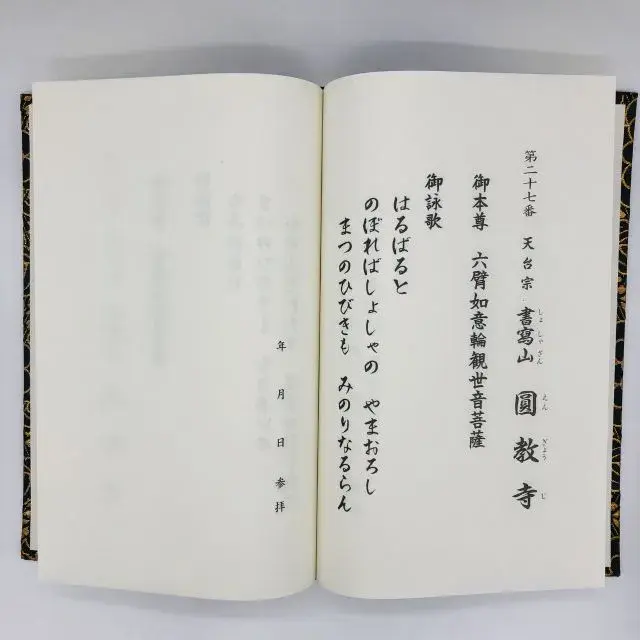 第二十七番 天台宗 書寫山 圓教寺
しょしゃざん えんぎょうじ
御本尊 六臂如意輪観世音菩薩
御詠歌
はるばると
のぼればしょしゃの やまおろし
まつのひびきも みのりなるらん
年 月 日 参拝